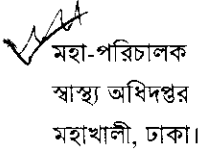 মহা-পরিচালক
স্বাস্থ্য অধিদপ্তর
মহাখালী, ঢাকা।